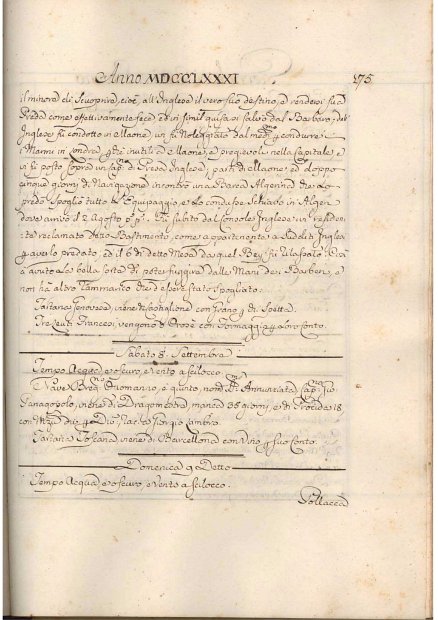 Anno MDCCLXXXI
175
il minora di Scuoprire, cioè, all'Inglese il vero suo destino, e rendersi sua
Preda come effettivamente fece, ed in simil guisa si salvò dal Barbaro; dall'
Inglese fù condotto in Maone, un fù Noleggiato dal med.º p condurre
i Marmi in Londra p inutili a Maone, e pregevoli nella Capitale e
vi fù posto sopra un Cap. di Presa Inglese, partì di Maone, ed doppo
cinque giorni di Navigazione incontrò una Barca Algerina che lo
predò spogliò tutto l'Equipaggio, e lo condusse Schiavo in Algeri
dove arrivò il 2 Agosto p.p. Fù subito dal Console Inglese ivi Residen-
te reclamato detto Bastimento, come appartenente a Sudditi Inglesi
p averlo predato, ed il 6 di detto Mese da quel Bey fù rilasciato. Così
à avuto la bella sorte di poter fuggire dalle Mani dei Barberi, e
non hà altro rammarico che di essere stato spogliato.
Tartana Genovese, viene da Castiglione con Grano p di Spetta.
Tre Leuti Francesi, vengono d'Orose con Formaggi p loro Conto.
Sabato 8. Settembre
Tempo Acqua, e oscuro, e Vento a Scilocco.
Nave Ottomanno, è giunto, nom.ta Annunziata Cap.
Panagopolo, viene di Dragomestre, manca 38 giorni, e di Procida 18
con
Tartana Toscana viene di Barcellona con Vino p suo Conto.
Domenica 9 Detto
Tempo Acqua, e oscuro, e Vento a Scilocco.
Pollacca